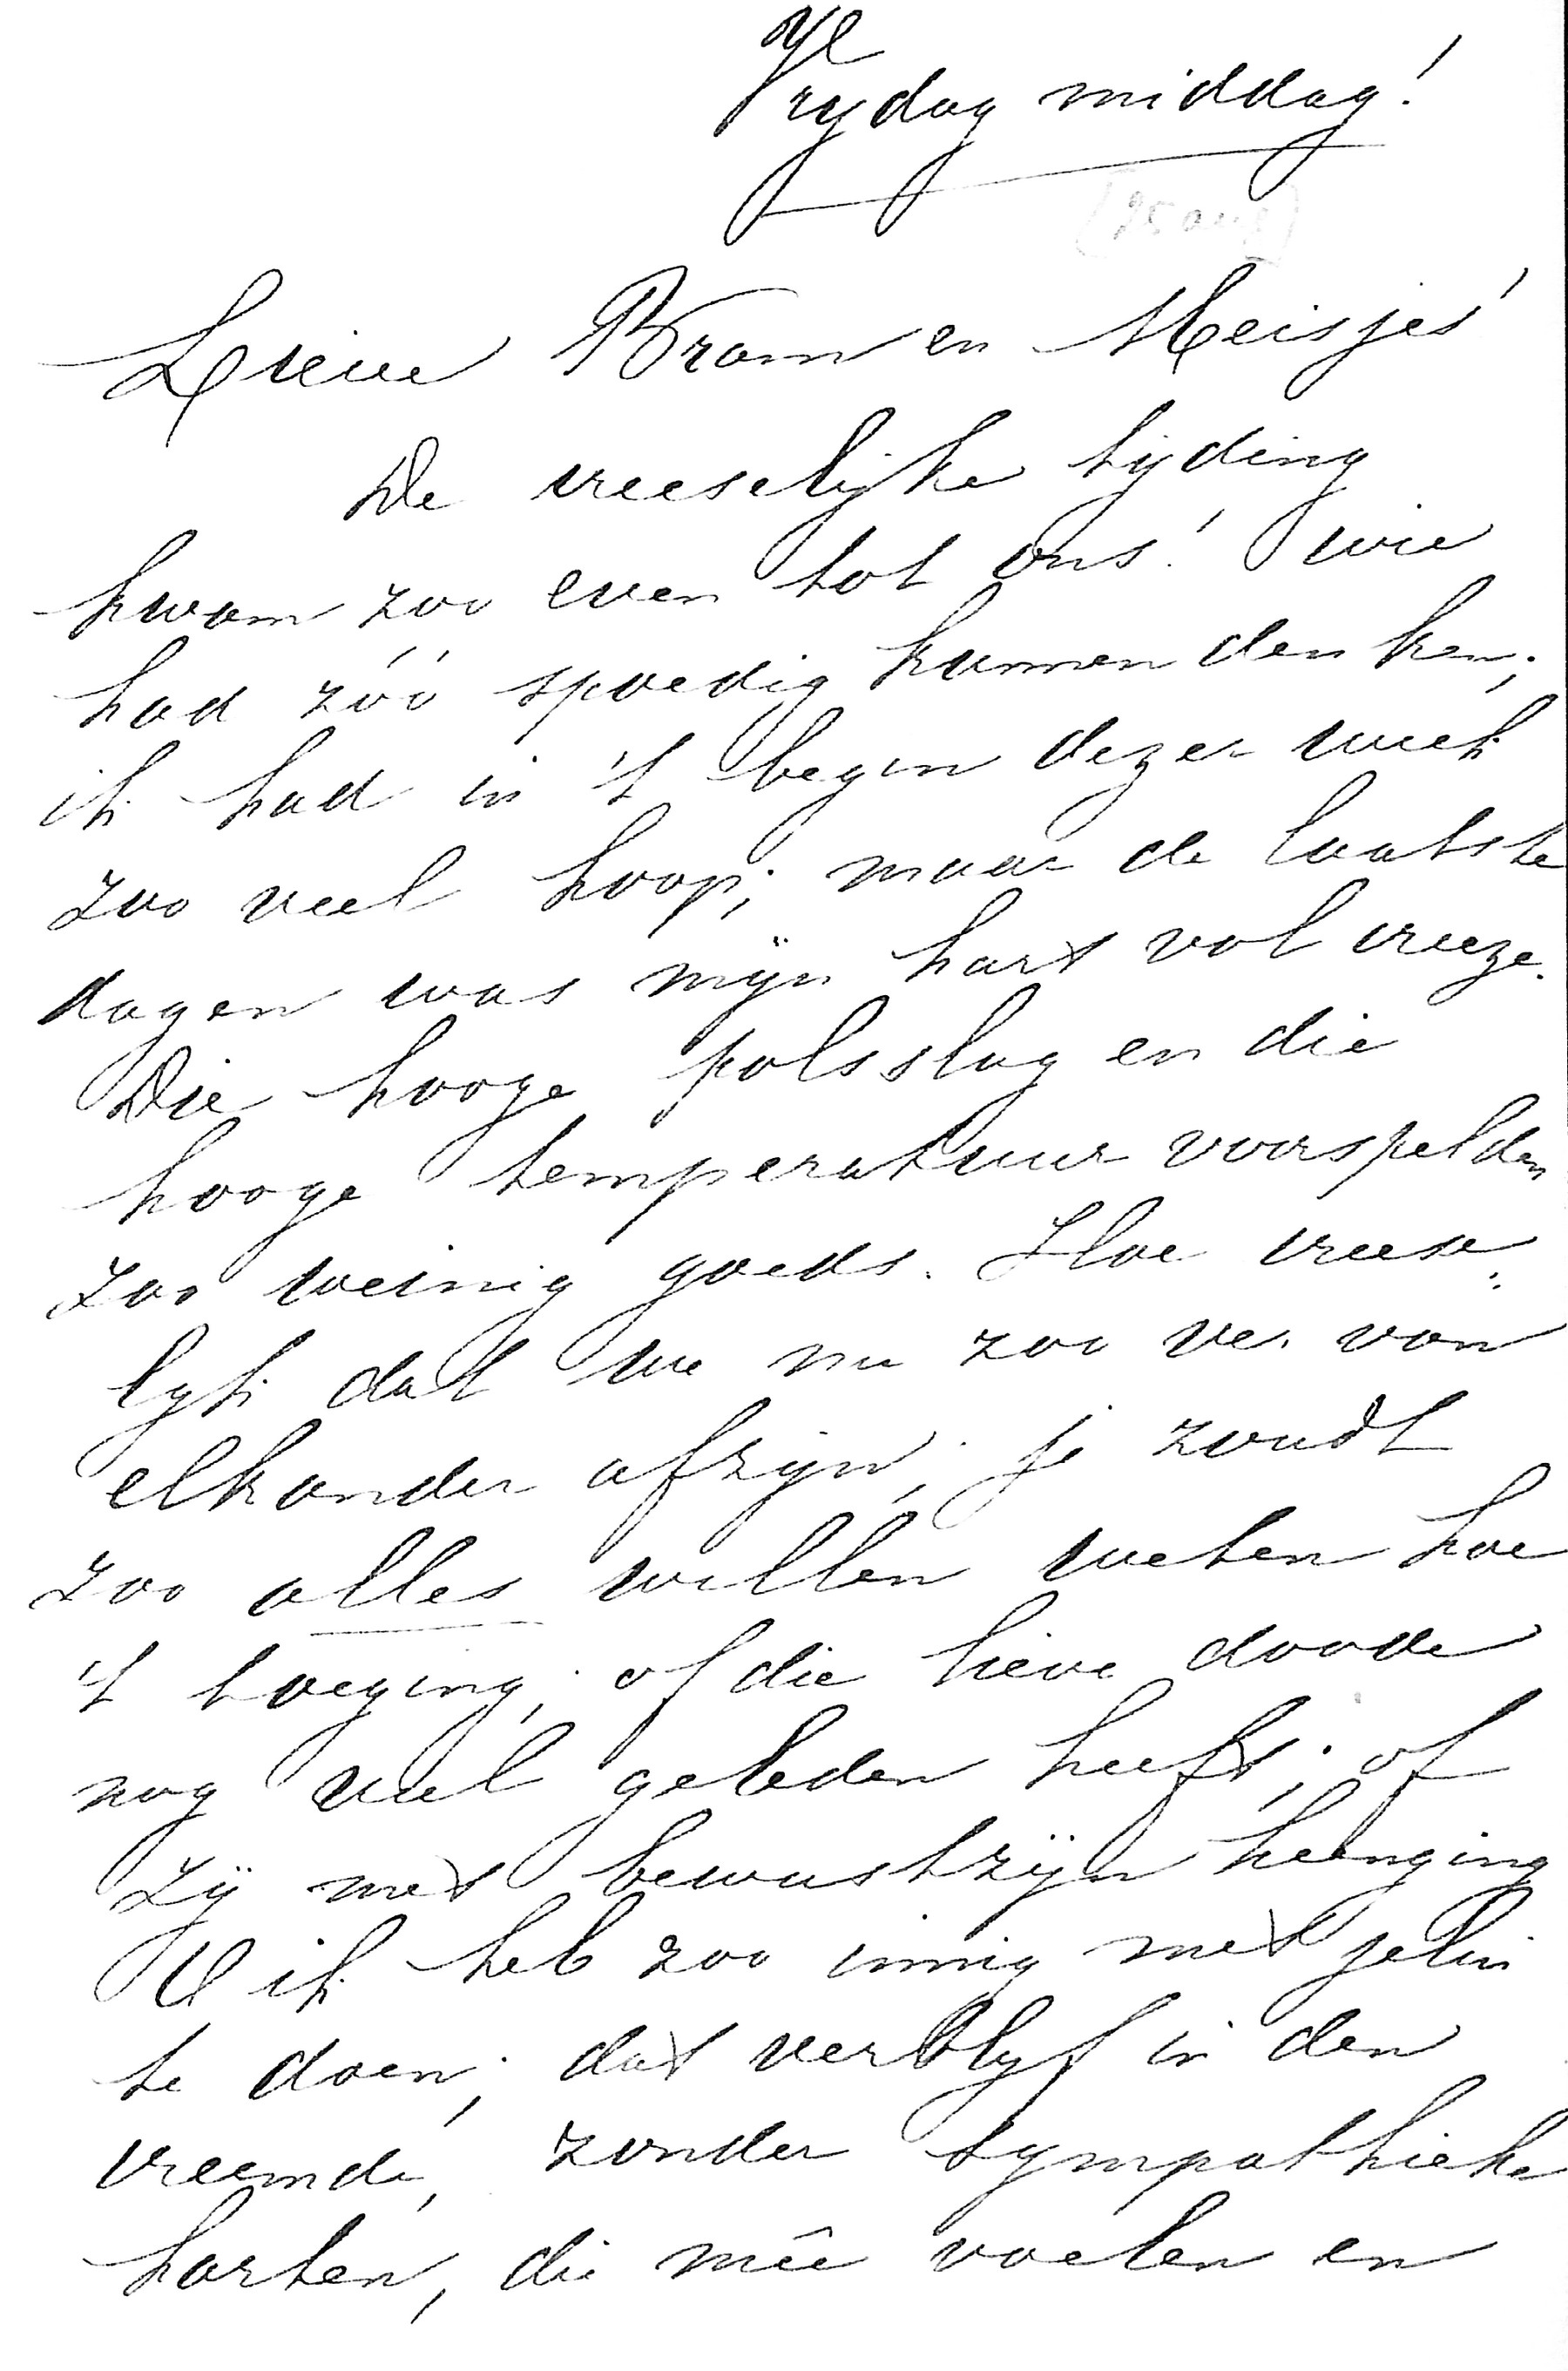 Vrydag middag!
(25 aug)
Lieve Bram en Meisjes!
De vreeselijke tyding
kwam zoo even tot ons! wie
had zóó spoedig kunnen denken;
ik had in 't begin dezer week
zoo veel hoop; maar de laatste
dagen was mijn hart vol vreeze.
Die hooge polsslag en die
hooge temperatuur voorspelden
zoo weinig goeds. Hoe vreese:
lyk dat we nu zoo ver van
elkander afzyn; je zoudt
zoo alles willen weten hoe
't toeging; of die lieve doode
nog veel geleden heeft; of
zij met bewustzijn heenging
O ik heb zoo innig met jelui
te doen; dat verblyf in den
vreemde, zonder sympathieke
harten, die mêe voelen en